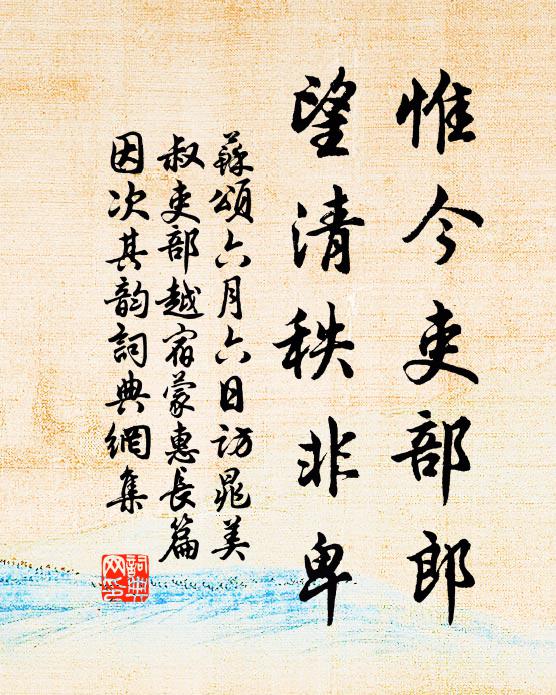 惟今吏部郎
望清秩非卑
蘇頌六月六日訪晁美
叔吏部越宿蒙惠長篇
因次其韵詞典網集
詞典
网印